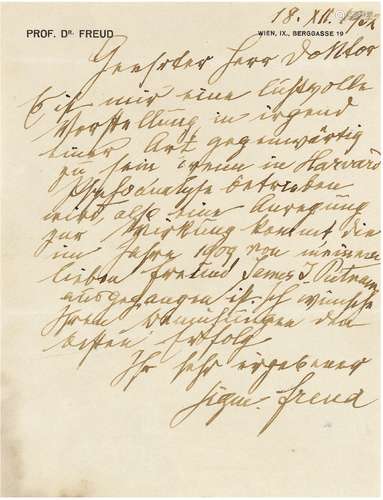 18. XII. 1932
PROF. DR. FREUD
WIEN, IX., BERGGASSE 19
Geehrter Herr Doktor
Es ist mir eine lustvolle
Vorstellung in irgend
einer Art gegenwärtig
zu sein wenn in Harvard
Psychoanalyse betrieben
wird, als eine Anregung
zur Wirkung kommt die
im Jahre 1909 von meinem
lieben Freund James J. Putnam
ausgegangen ist. Ich wünsche
Ihren Bemühungen den
besten Erfolg
Ihr sehr ergebener
Sigm. Freud